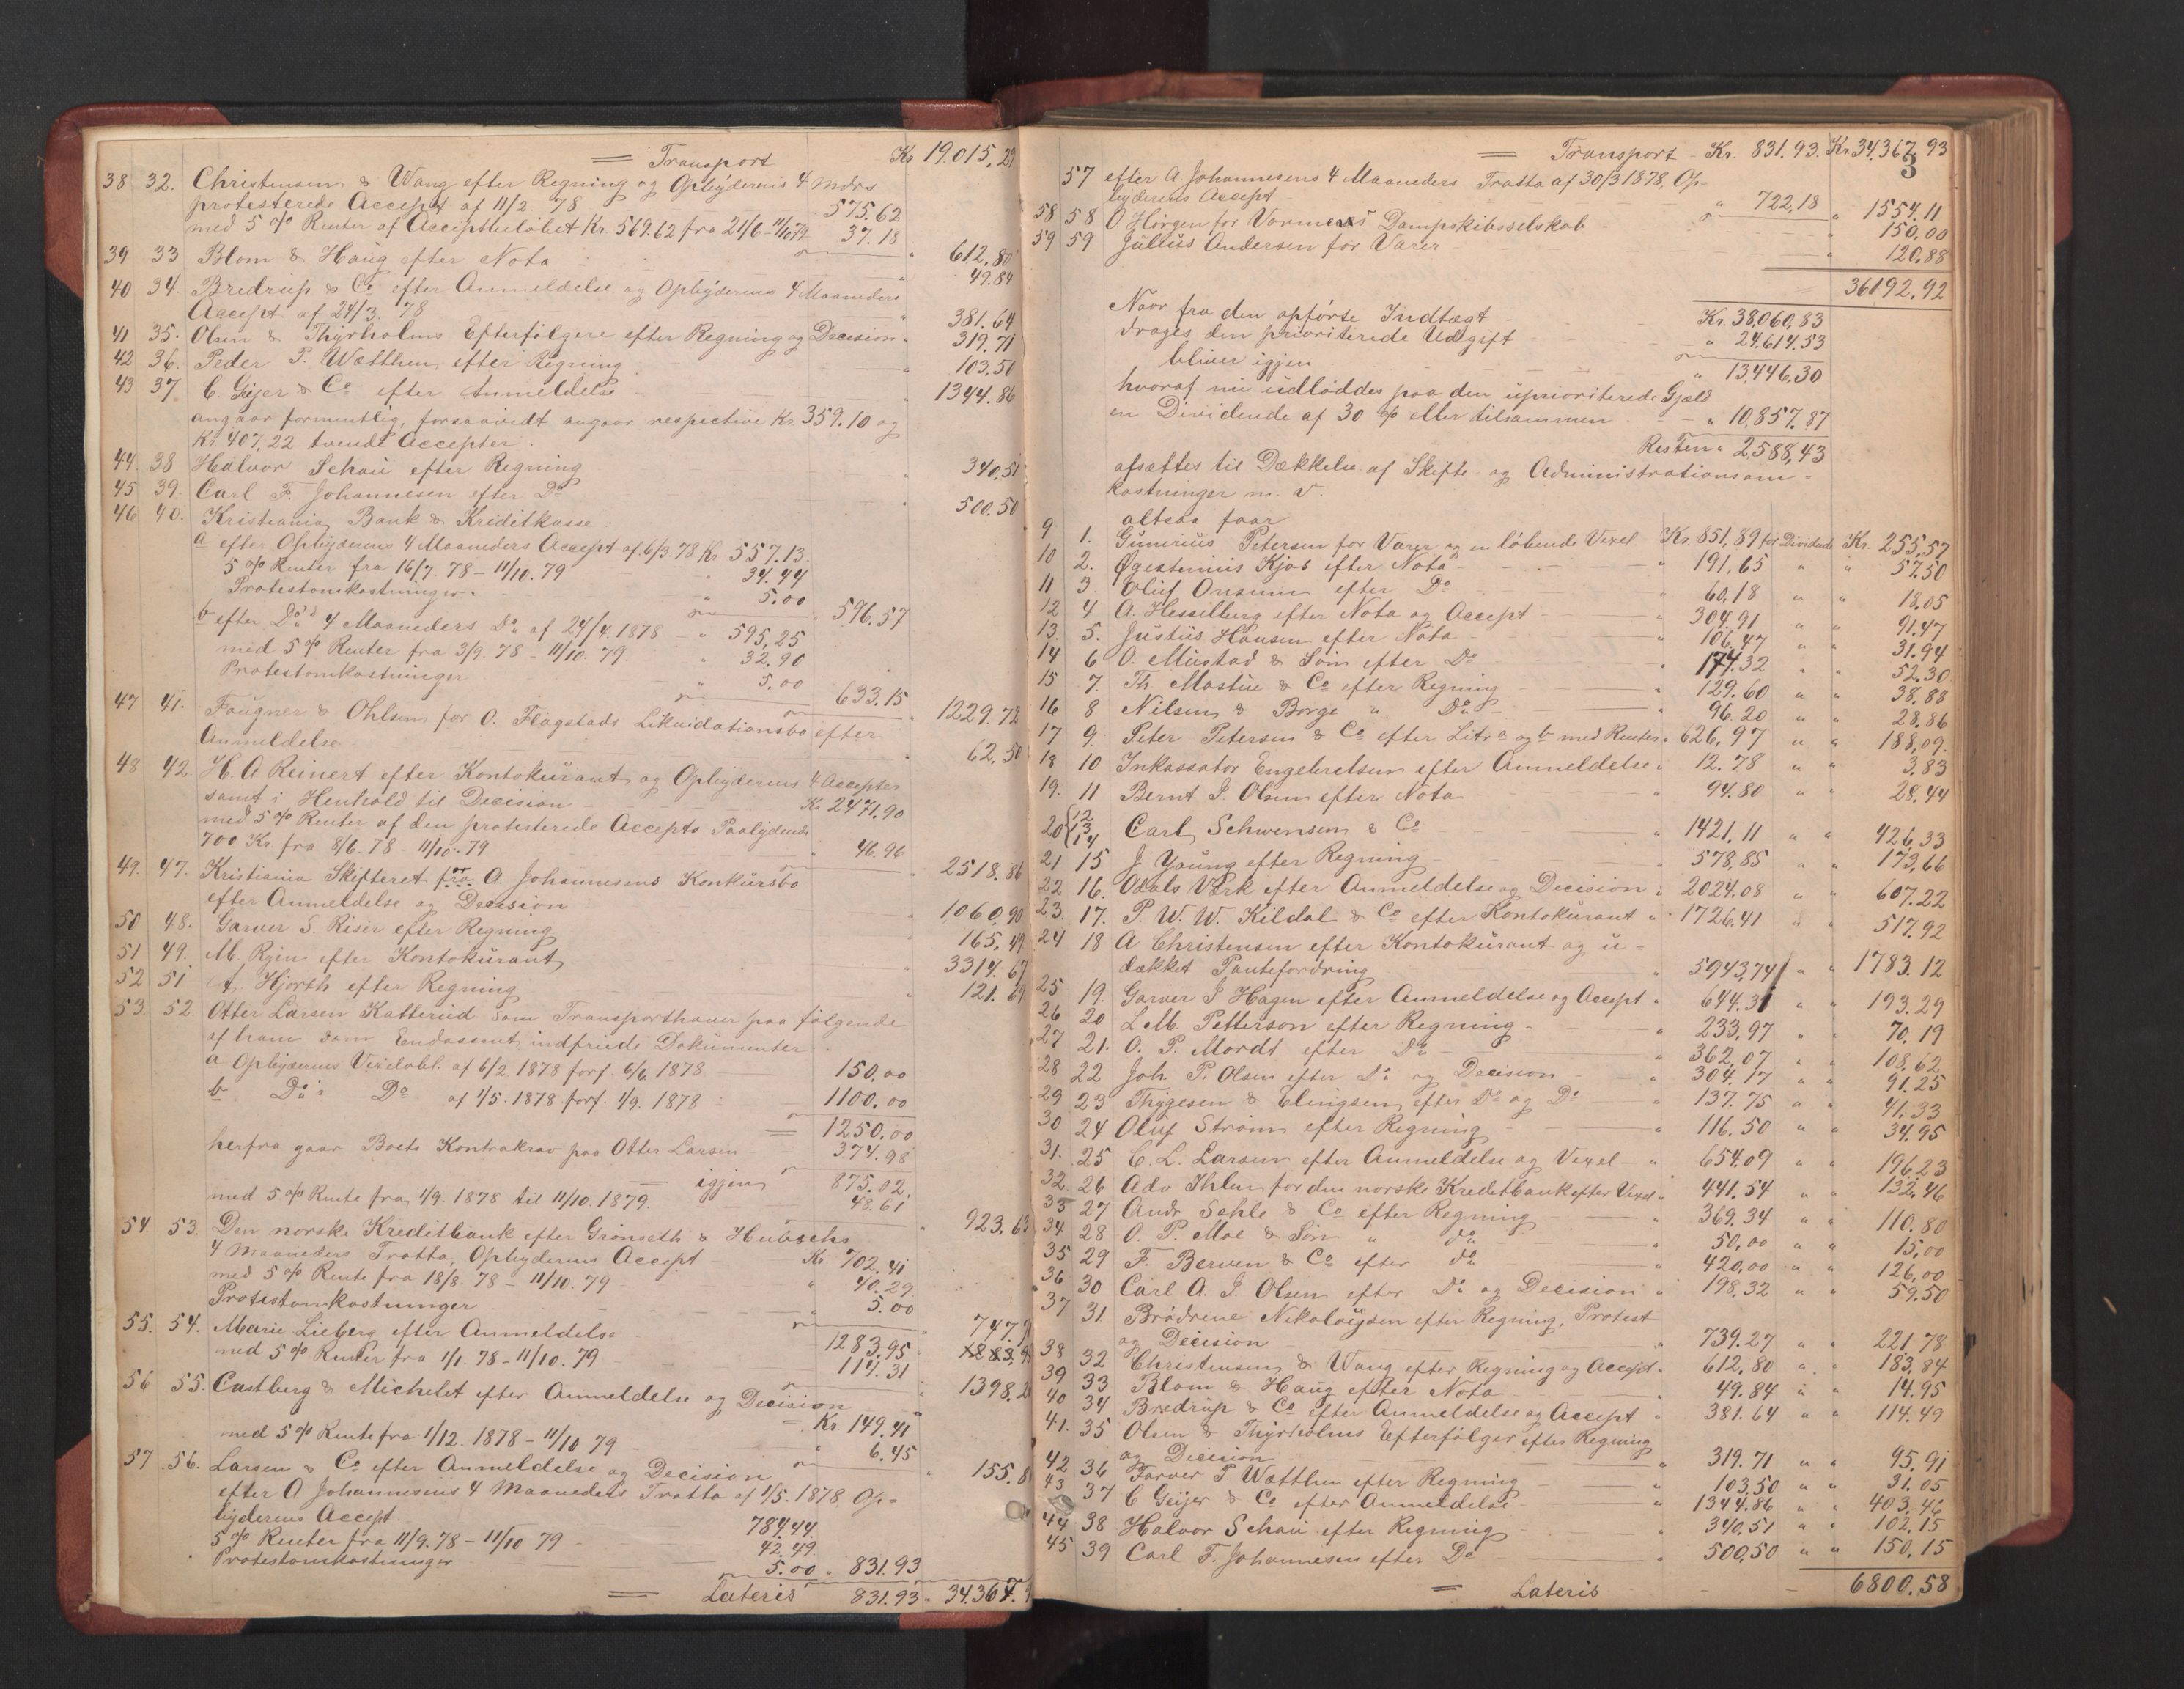 Transport Kr 19.015,29
38 32. Christensen & Wang efter Regning og Opbyderens 4 Mdrs
protesterede Accept af 11/2. 78 575.62
med 5 % Renter af Acceptbeløbet Kr. 569.62 fra 21/6 - 11/10 79 37.18
39 33 Blom & Haug efter Nota " 612.80
49.84
40 34. Bredrup & Co efter Anmeldelse og Opbyderens 4 Maaneders
Accept af 24/3. 78 " 381.64
41 35. Olsen & Thyrholms Efterfølgere efter Regning og Decision " 319.71
42 36. Peder P. Wætthen efter Regning 103.50
43 37. C. Geijer & Co efter Anmeldelse " 1344.86
angaar formentlig, forsaavidt angaar respective Kr. 359.10 og
Kr 407,22 tvende Accepter.
44. 38 Halvor Schou efter Regning " 340,51
45 39. Carl F. Johannesen efter Do " 500.50
46 40. Kristiania Bank & Kreditkasse:
a efter Opbyderens 4 Maaneders Accept af 6/3. 78 Kr 557.13
5 % Renter fra 16/7. 78 - 11/10. 79 " 34.44
Protestomkostninger. " 5.00
596.57
b efter Do's 4 Maaneders Do af 24/4. 1878 - " 595,25
med 5 % Renter fra 3/9. 78 - 11/10. 79. " 32,90
Protestomkostninger " 5.00
633.15 " 1229.72
47 41. Faugner & Ohlsen for O. Flagstads Likvidationsbo efter
Anmeldelse " 62,50
48 42. H. A. Reinert efter Kontokurant og Opbyderens 4 Accepter
samt i Henhold til Decision Kr. 2471.90
med 5 % Renter af den protesterede Accepts Paalydende
700 Kr. fra 8/6. 78 - 11/10 - 79 " 46.96
" 2518.86
49. 47. Kristiania Skifteret fra A. Johannesens Konkursbo
efter Anmeldelse og Decision " 1060,90
50 48. Garver S. Risir efter Regning " 165,49
51 49. M. Rjen efter Kontokurant " 3314.67
52 51 A. Hjorth efter Regning " 121.69
53. 52. Otter Larsen Katterud som Transporthaver paa følgende
af ham som Endossent indfriede Dokumenter.
a Opbyderens Vexelobl. af 6/2 1878 forf. 6/6 1878 150,00
b Do's Do af 1/5. 1878 forf. 1/9. 1878 1100.00
1250.00
herfra gaar Boets Kontrakrav paa Otter Larsen 374.98
igjen 875.02.
med 5 % Rente fra 1/9. 1878 til 11/10. 1879. 48.61
923,63
54. 53. Den norske Kreditbank efter Grønseth & Hubschs
4 Maaneders Tratta, Opbyderens Accept Kr. 702.41
med 5 % Rente fra 18/8. 78 - 11/10. 79 " 40.29.
Protestomkostninger " 5.00
747.7
55. 54. Marie Lieberg efter Anmeldelse 1283.95
med 5 % Renter fra 1/1. 78 - 11/10. 79 114.31
" 1398.2
56 55. Castberg & Michelet efter Anmeldelse og Decision
Kr. 149.41
med 5 % Rente fra 1/12. 1878 - 11/10 79 " 6.45
" 155.8
57 56. Larsen & Co efter Anmeldelse og Decision
efter A Johannesens 4 Maaneders Tratta af 1/5. 1878, Op=
byderens Accept. 784.44.
5 % Renter fra 11/9. 78 - 11/10 79 42.49.
Protestomkostninger 5.00 " 831.93
Lateris 831.93 - 34.367.9
Transport Kr. 831.93. Kr. 34.367 93
3
57 efter A. Johannesens 4 Maaneders Tratta af 30/3 1878, Op=
byderens Accept " 722,18 " 1554.11
58 58 O. Hørgen for Vormens Dampskibsselskab 150,00
59 59 Julius Andersen for Varer " 120.88
36192.92
Naar fra den opførte Indtægt Kr. 38,060,83
drages den prioriterede Udgift " 24.614.53
bliver igjen " 13,446,30
hvoraf nu udloddes paa den uprioriterede Gjæld
en Dividende af 30 % eller tilsammen " 10,857.87
Resten " 2,588,43
afsættes til Dækkelse af Skifte- og Administrationsom=
kostninger m. v.
altsaa faar
9. 1. Gunerius Petersen for Varer og en løbende Vexel Kr. 851,89 for Dividende Kr. 255,57
10 2. Øgestenius Kjos efter Nota " 191,65 " " 57.50
11 3. Oluf Onsum efter Do " 60,18 " " 18.05
12 4 A. Hesselberg efter Nota og Accept 304.91 " " 91.47
13. 5. Justus Hansen efter Nota " 106,47 " " 31.94
14 6 O. Mustad & Søn efter Do " 174.32 52.30
15 7. Th. Mostue & Co efter Regning 129.60 " " 38.88
16 8 Nilsen & Borge " Do " 96.20 " " 28,86
17 9. Peter Petersen & Co efter Litr a og b med Renter " 626,97 " " 188,09.
18 10 Inkassator Engebretsen efter Anmeldelse " 12.78 " " 3,83
19. 11 Bernt J. Olsen efter Nota " 94.80 " " 28,44
20 12 13 14 Carl Schwensen & Co " 1421.11 " " 426,33
21 15 J Young efter Regning " 578,85 " " 173,66
22 16. Odals Værk efter Anmeldelse og Decision " 2024.08 " " 607.22
23. 17. P. W. W. Kildal & Co efter Kontokurant " 1726,41 " " 517.92
24 18 A Christensen efter Kontokurant og u=
dækket Pantefordring " 5943,74 " " 1783.12
25 19. Garver J Hagen efter Anmeldelse og Accept " 644.31 " " 193.29
26 20 L. M. Petterson efter Regning " 233,97 " " 70.19
27 21. O. P. Mordt efter Do " 362,07 " " 108,62
28 22 Joh. P. Olsen efter Do og Decision " 304.17 " " 91.25
29 23 Thygesen & Elingsen efter Do og Do " 137.75 " " 41.33
30 24 Oluf Strøm efter Regning " 116.50 " " 34.95
31. 25 C. L. Larsen efter Anmeldelse og Vexel " 654.09 " " 196,23
32. 26 Adv Ihlen for den norske Kreditbank efter Vexel " 441.54 " " 132,46
33 27 Andr. Sehle & Co efter Regning " 369.34 " " 110.80
34 28 O. P. Moe & Søn " do " 50,00 " " 15,00
35 29 F. Berven & Co efter do " 420,00 " " 126,00
36 30 Carl A. J. Olsen efter Do og Decision " 198,32 " " 59.50
37 31 Brødrene Nikolaysen efter Regning, Protest
og Decision " 739.27 " " 221,78
38 32 Christensen & Wang efter Regning og Accept " 612,80 " " 183,84
39 33 Blom & Haug efter Nota " 49.84 " " 14.95
40 34 Bredrup & Co efter Anmeldelse og Accept " 381.64 " " 114.49
41. 35 Olsen & Thyrholms Efterfølger efter Regning
og Decision " 319.71 " " 95.91
42 36 Farver P. Wætthen efter Regning " 103,50 " " 31.05
43 37 C Geijer & Co efter Anmeldelse " 1344.86 " " 403,46
44 38 Halvor Schou efter Regning " 340,51 " " 102,15
45 39 Carl F. Johannesen efter Do " 500,50 " " 150,15
Lateris 6800.58